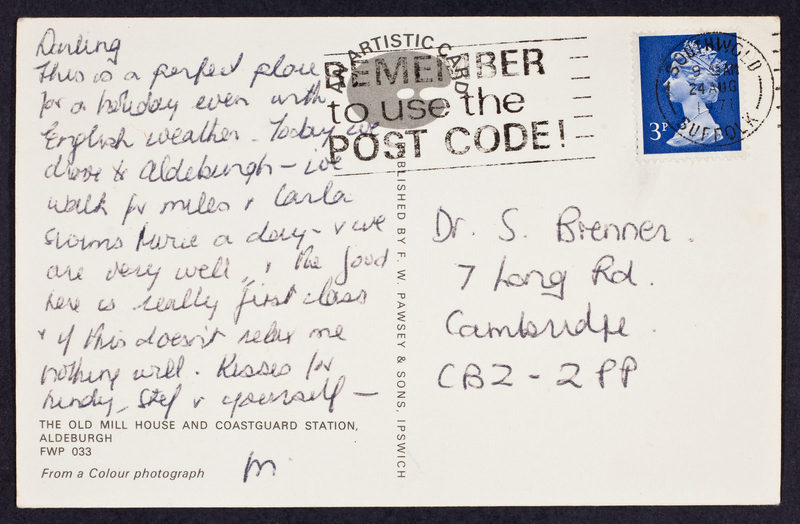 Darling
This is a perfect place
for a holiday even with
English weather. Today we
drove to Aldeburgh – we
walk for miles & Carla
swims twice a day – & we
are very well, & the food
here is really first class
& if this doesn't relax me
nothing will. Kisses for
Lindy, Stef & yourself –
M.
THE OLD MILL HOUSE AND COASTGUARD STATION,
ALDEBURGH
FWP 033
From a Colour photograph
AN ARTISTIC CARD
PUBLISHED BY F. W. PAWSEY & SONS, IPSWICH
REMEMBER
to use the
POST CODE!
SOUTHWOLD
24 AUG
SUFFOLK
3P
Dr. S. Brenner.
7 Long Rd.
Cambridge.
CB2 - 2PP